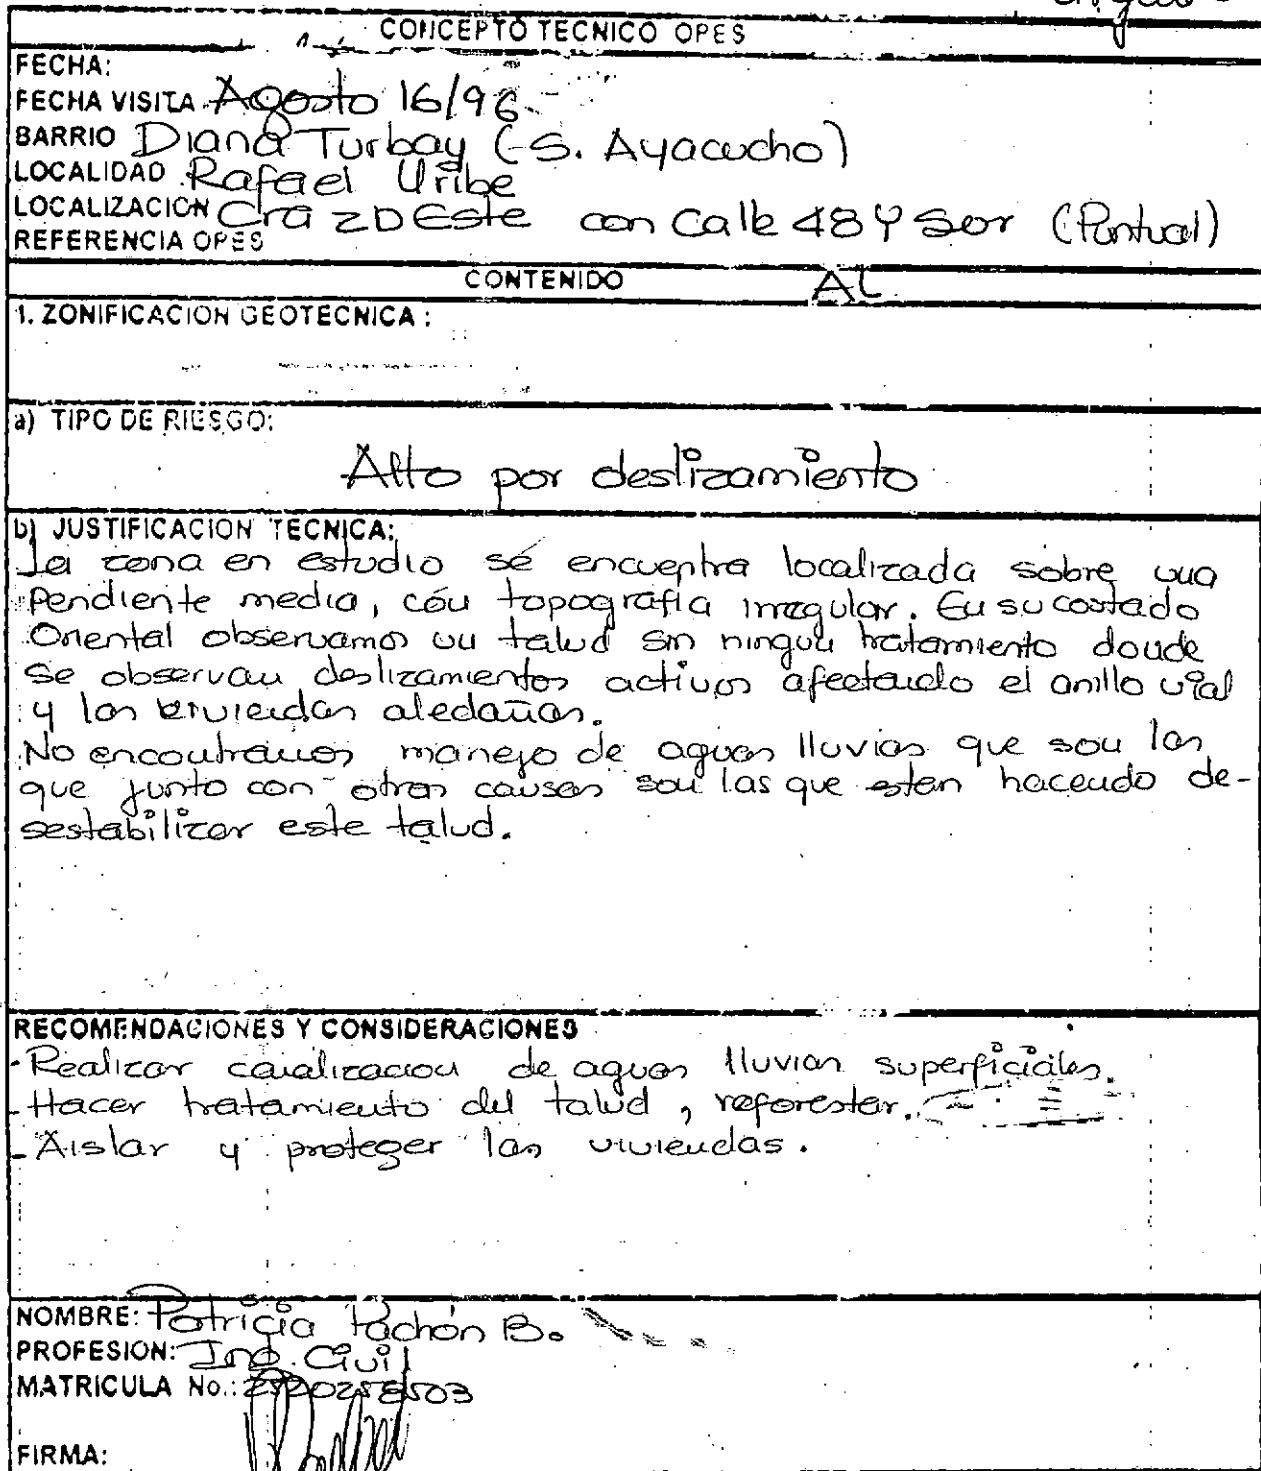 CONCEPTO TECNICO OPES
FECHA:
FECHA VISITA Agosto 16/96
BARRIO Diana Turbay (S. Ayacucho)
LOCALIDAD Rafael Uribe
LOCALIZACION Cra 2D Este con Calle 48 Y Sur (Puntual)
REFERENCIA OPES
CONTENIDO
1. ZONIFICACION GEOTECNICA :
a) TIPO DE RIESGO:
Alto por deslizamiento
b) JUSTIFICACION TECNICA:
La zona en estudio se encuentra localizada sobre una
Pendiente media, con topografia irregular. En su costado
Oriental observamos un talud sin ningun tratamiento donde
se observan deslizamientos activos afectando el anillo vial
y las viviendas aledañas.
No encontramos manejo de aguas lluvias que son las
que junto con otras causas son las que estan haciendo de-
sestabilizar este talud.
RECOMENDACIONES Y CONSIDERACIONES
- Realizar canalizacion de aguas lluvias superficiales.
- Hacer tratamiento del talud, reforestar.
- Aislar y proteger las viviendas.
NOMBRE: Patricia Pachón B.
PROFESION: Ing. Civil
MATRICULA No.:
FIRMA: